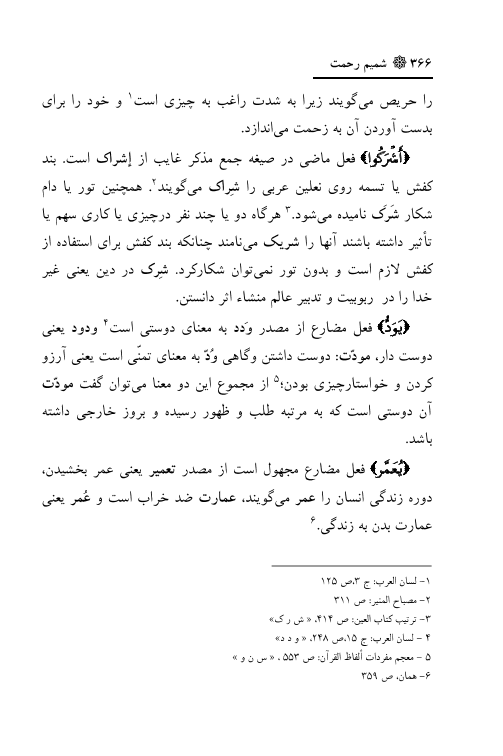 ۳۶۶ ❁ شمیم رحمت
را حریص می‌گویند زیرا به شدت راغب به چیزی است۱ و خود را برای
بدست آوردن آن به زحمت می‌اندازد.
﴿أَشْرَكُوا﴾ فعل ماضی در صیغه جمع مذکر غایب از إشراک است. بند
کفش یا تسمه روی نعلین عربی را شِراک می‌گویند۲. همچنین تور یا دام
شکار شَرَک نامیده می‌شود.۳ هرگاه دو یا چند نفر درچیزی یا کاری سهم یا
تأثیر داشته باشند آنها را شریک می‌نامند چنانکه بند کفش برای استفاده از
کفش لازم است و بدون تور نمی‌توان شکارکرد. شِرک در دین یعنی غیر
خدا را در ربوبیت و تدبیر عالم منشاء اثر دانستن.
﴿يَوَدُّ﴾ فعل مضارع از مصدر وَدد به معنای دوستی است۴ ودود یعنی
دوست دار، مودّت: دوست داشتن وگاهی وُدّ به معنای تمنّی است یعنی آرزو
کردن و خواستارچیزی بودن؛۵ از مجموع این دو معنا می‌توان گفت مودّت
آن دوستی است که به مرتبه طلب و ظهور رسیده و بروز خارجی داشته
باشد.
﴿يُعَمَّر﴾ فعل مضارع مجهول است از مصدر تعمیر یعنی عمر بخشیدن،
دوره زندگی انسان را عمر می‌گویند، عمارت ضد خراب است و عُمر یعنی
عمارت بدن به زندگی.۶
۱- لسان العرب: ج ۳،ص ۱۲۵
۲- مصباح المنیر: ص ۳۱۱
۳- ترتیب کتاب العین: ص ۴۱۴، « ش ر ک»
۴ - لسان العرب: ج ۱۵،ص ۲۴۸، « و د د»
۵ - معجم مفردات ألفاظ القرآن: ص ۵۵۳ ، « س ن و »
۶- همان، ص ۳۵۹